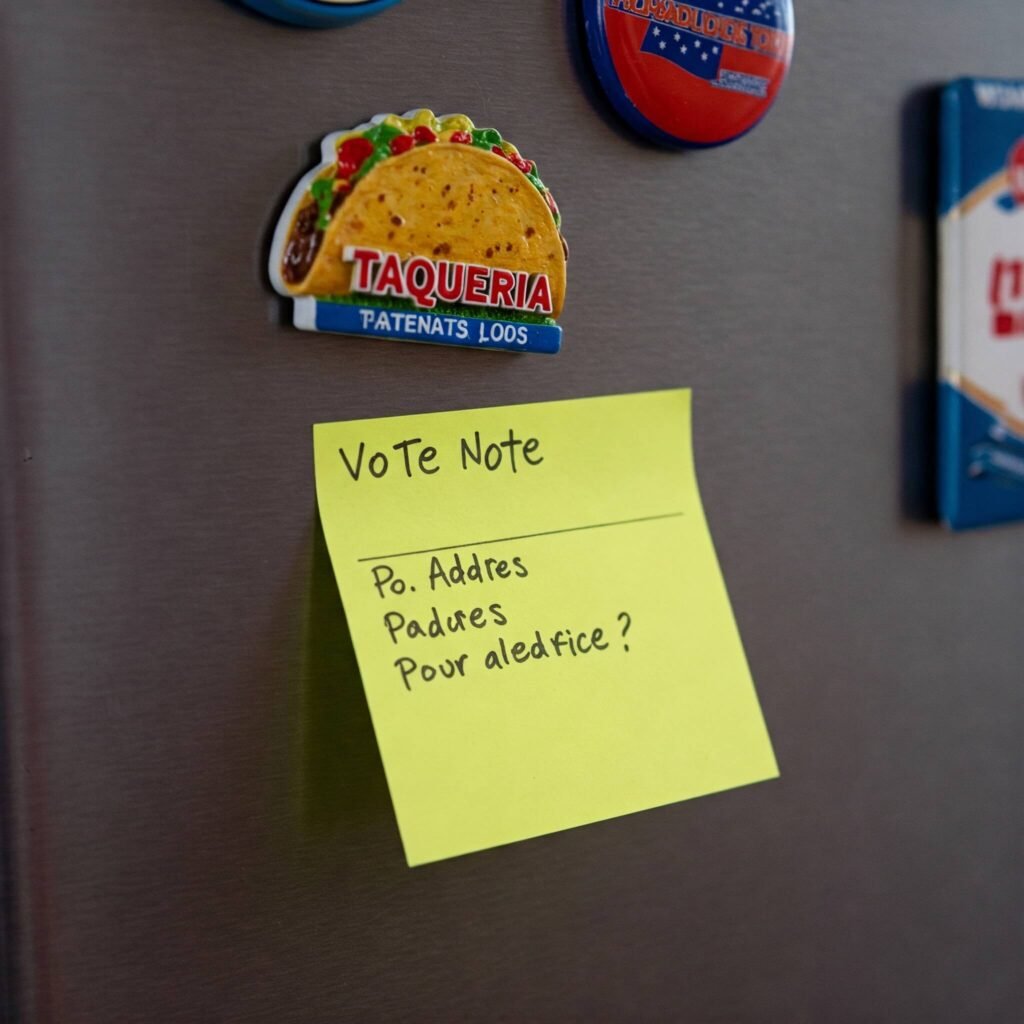 TAQUERIA
PATENATS LOOS
VoTe NoTe
Po. Addres
Padures
Pour aledfice?